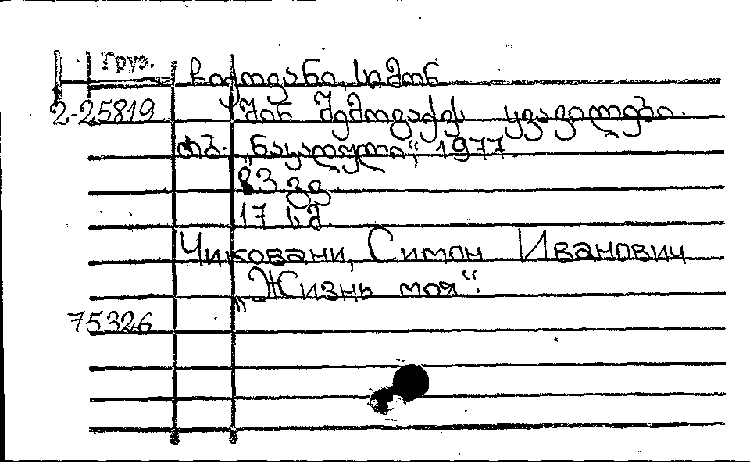 Груз.
ჩიქოვანი, სიმონ
2-25819
ვინ შემოგაქვს ყვავილები
თბ. „ნაკადული“ 1977
83 გვ
17 სმ
Чиковани, Симон Иванович
„Жизнь моя“.
75326